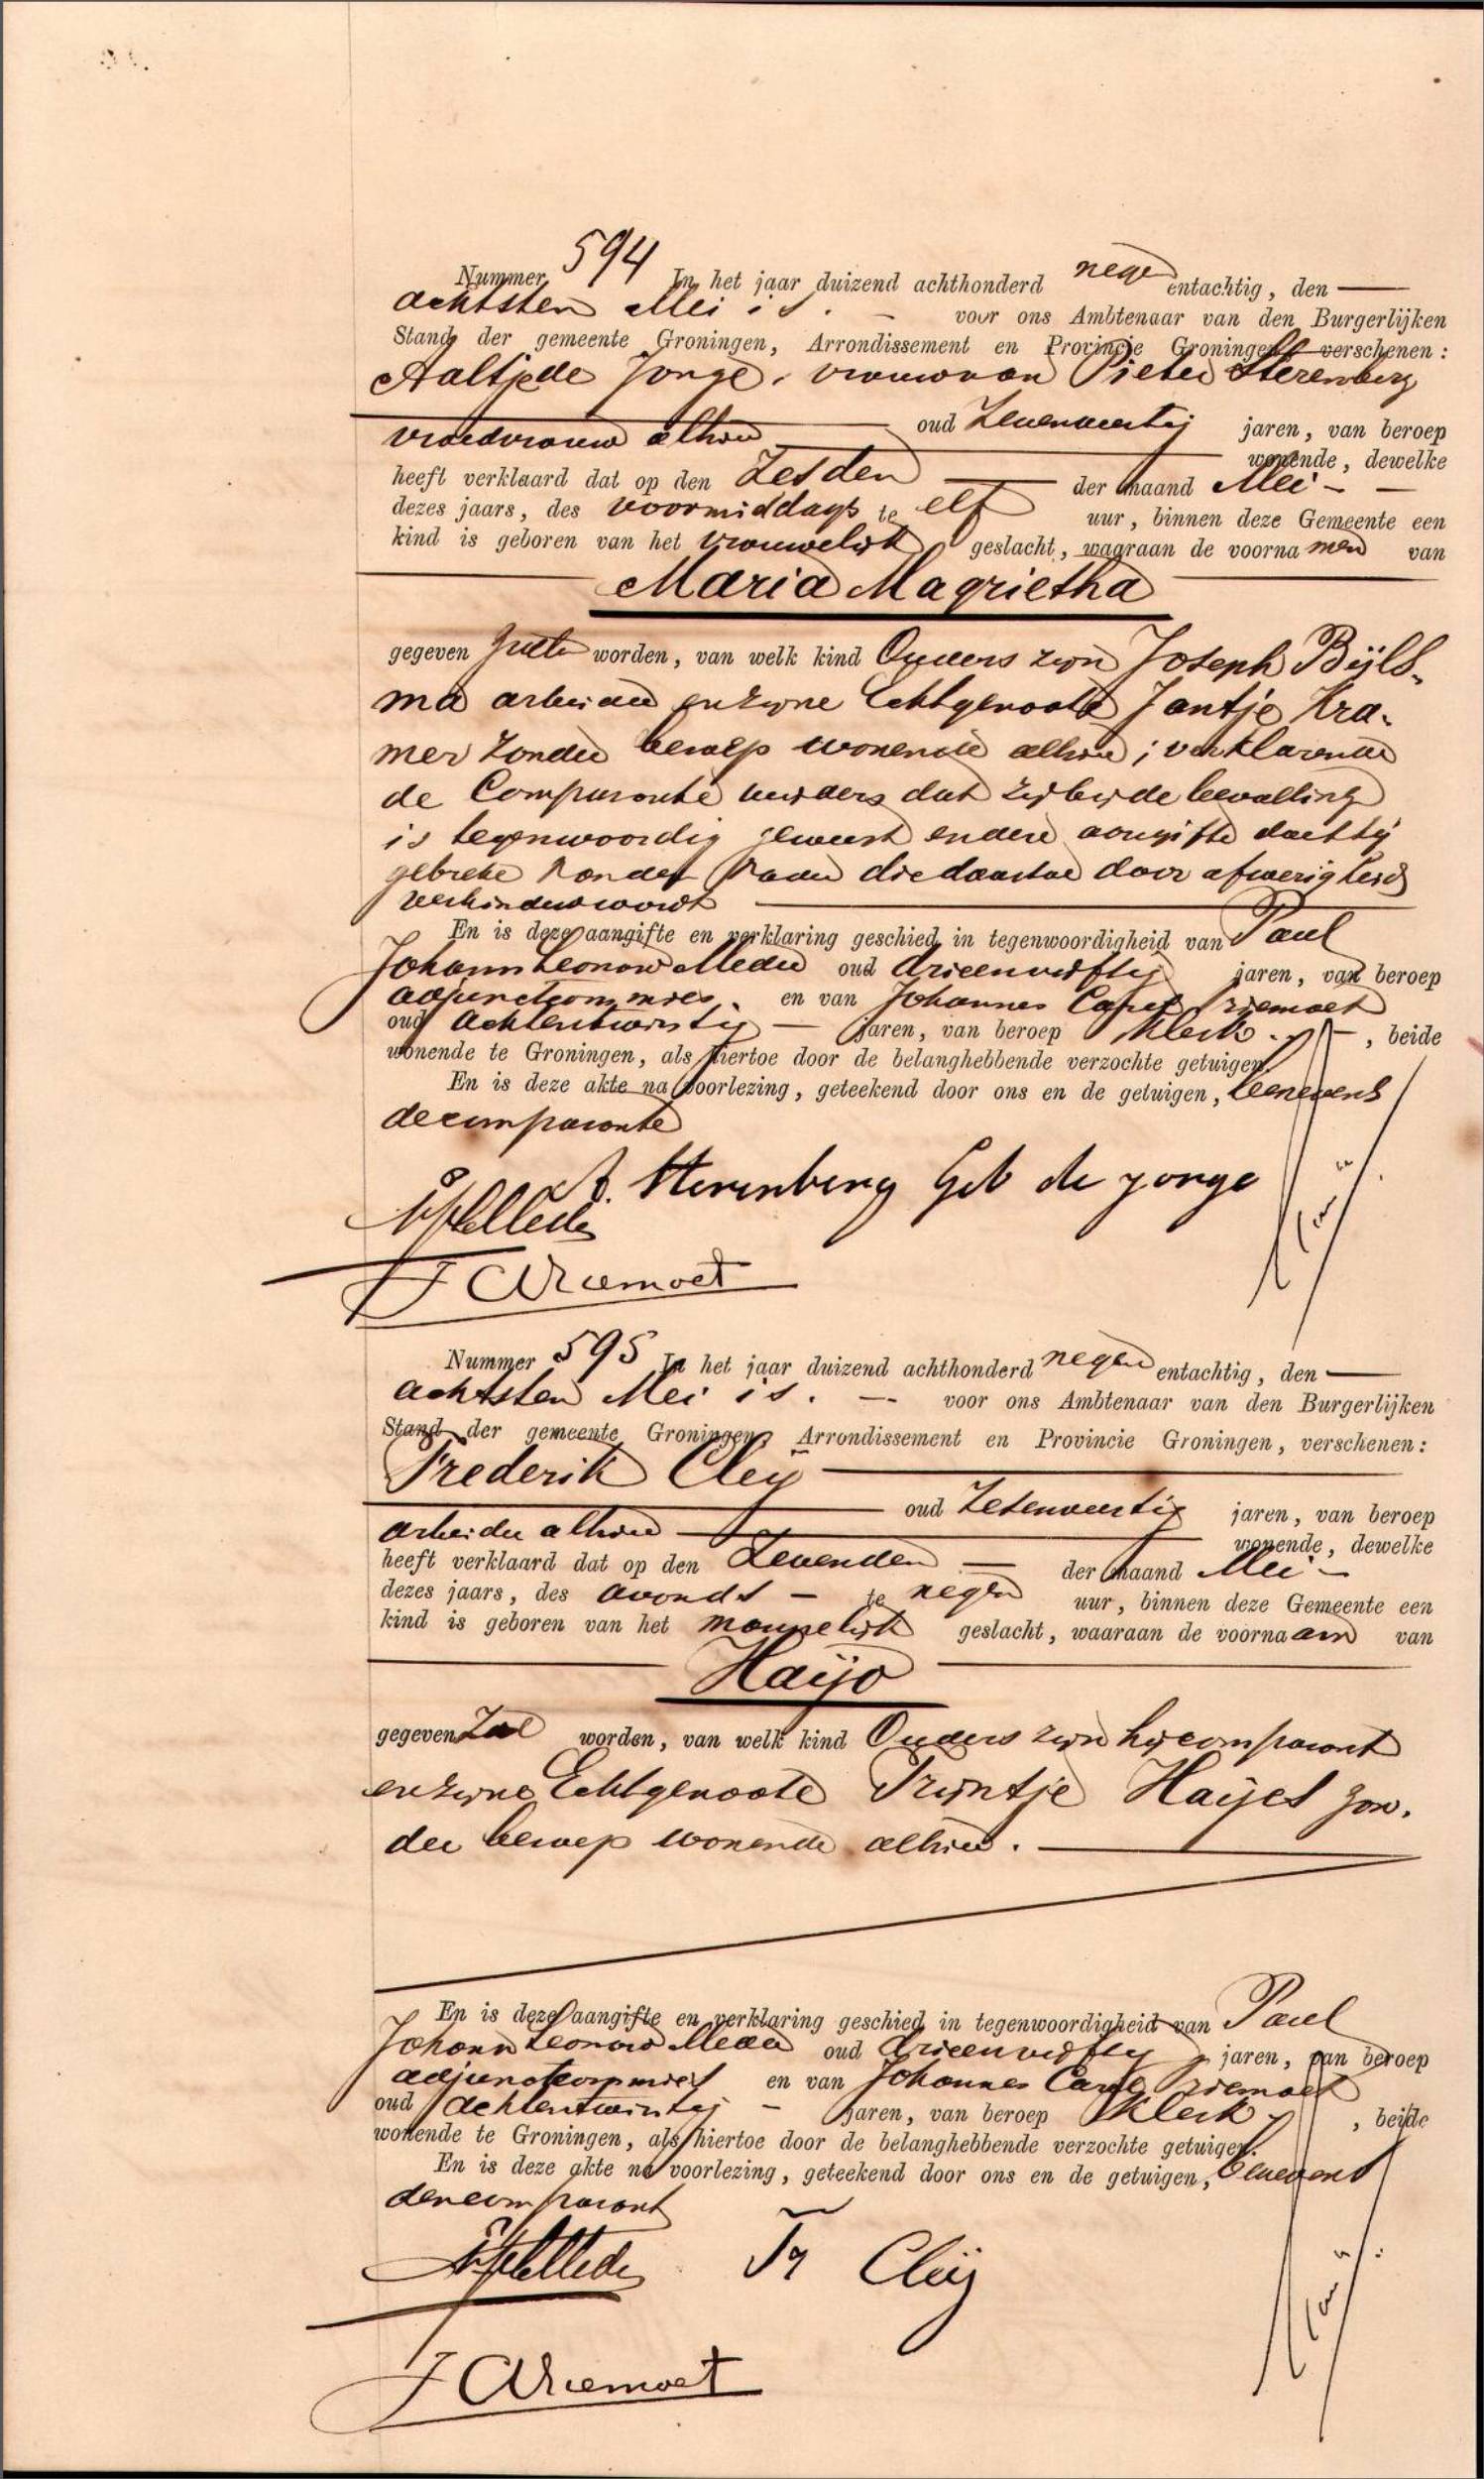 Nummer 594 In het jaar duizend achthonderd negen entachtig, den
achtsten Mei is. voor ons Ambtenaar van den Burgerlijken
Stand der gemeente Groningen, Arrondissement en Provincie Groningen, verschenen:
Aaltje de Jonge, vrouw van Pieter Sterenberg
oud Zevenveertig jaren, van beroep
vroedvrouw alhier wonende, dewelke
heeft verklaard dat op den Zesden der maand Mei
dezes jaars, des voormiddags te elf uur, binnen deze Gemeente een
kind is geboren van het vrouwelijk geslacht, waaraan de voorna men van
Maria Magrietha
gegeven zullen worden, van welk kind Ouders zijn Joseph Bijls-
ma arbeider en zijne Echtgenoote Jantje Kra-
mer zonder beroep wonende alhier; verklarende
de Comparante verders dat zij bij de bevalling
is tegenwoordig geweest en dere aangifte doet bij
gebreke van den vader die daartoe door afwezigheid
verhinderd wordt
En is deze aangifte en verklaring geschied in tegenwoordigheid van Paul
Johann Leonard Meder oud drieenvijftig jaren, van beroep
adjunctcommies. en van Johannes Carel Riemoet
oud achtentwintig jaren, van beroep klerk, beide
wonende te Groningen, als hiertoe door de belanghebbende verzochte getuigen.
En is deze akte na voorlezing, geteekend door ons en de getuigen, benevens
de comparante
A. Sterenberg Geb de jonge
JCRiemoet
Nummer 595 In het jaar duizend achthonderd negen entachtig, den
achtsten Mei is. voor ons Ambtenaar van den Burgerlijken
Stand der gemeente Groningen, Arrondissement en Provincie Groningen, verschenen:
Frederik Cleij
oud Zesenveertig jaren, van beroep
arbeider alhier wonende, dewelke
heeft verklaard dat op den Zevenden der maand Mei
dezes jaars, des avonds te negen uur, binnen deze Gemeente een
kind is geboren van het mannelijk geslacht, waaraan de voorna am van
Haijo
gegeven Zal worden, van welk kind Ouders zijn hij comparant
en zijne Echtgenoote Trijntje Haijes zon-
der beroep wonende alhier.
En is deze aangifte en verklaring geschied in tegenwoordigheid van Paul
Johann Leonard Meder oud drieenvijftig jaren, van beroep
adjunctcommies en van Johannes Carel Riemoet
oud achtentwintig jaren, van beroep klerk, beide
wonende te Groningen, als hiertoe door de belanghebbende verzochte getuigen.
En is deze akte na voorlezing, geteekend door ons en de getuigen, benevens
den comparant
Fr Cleij
JCRiemoet